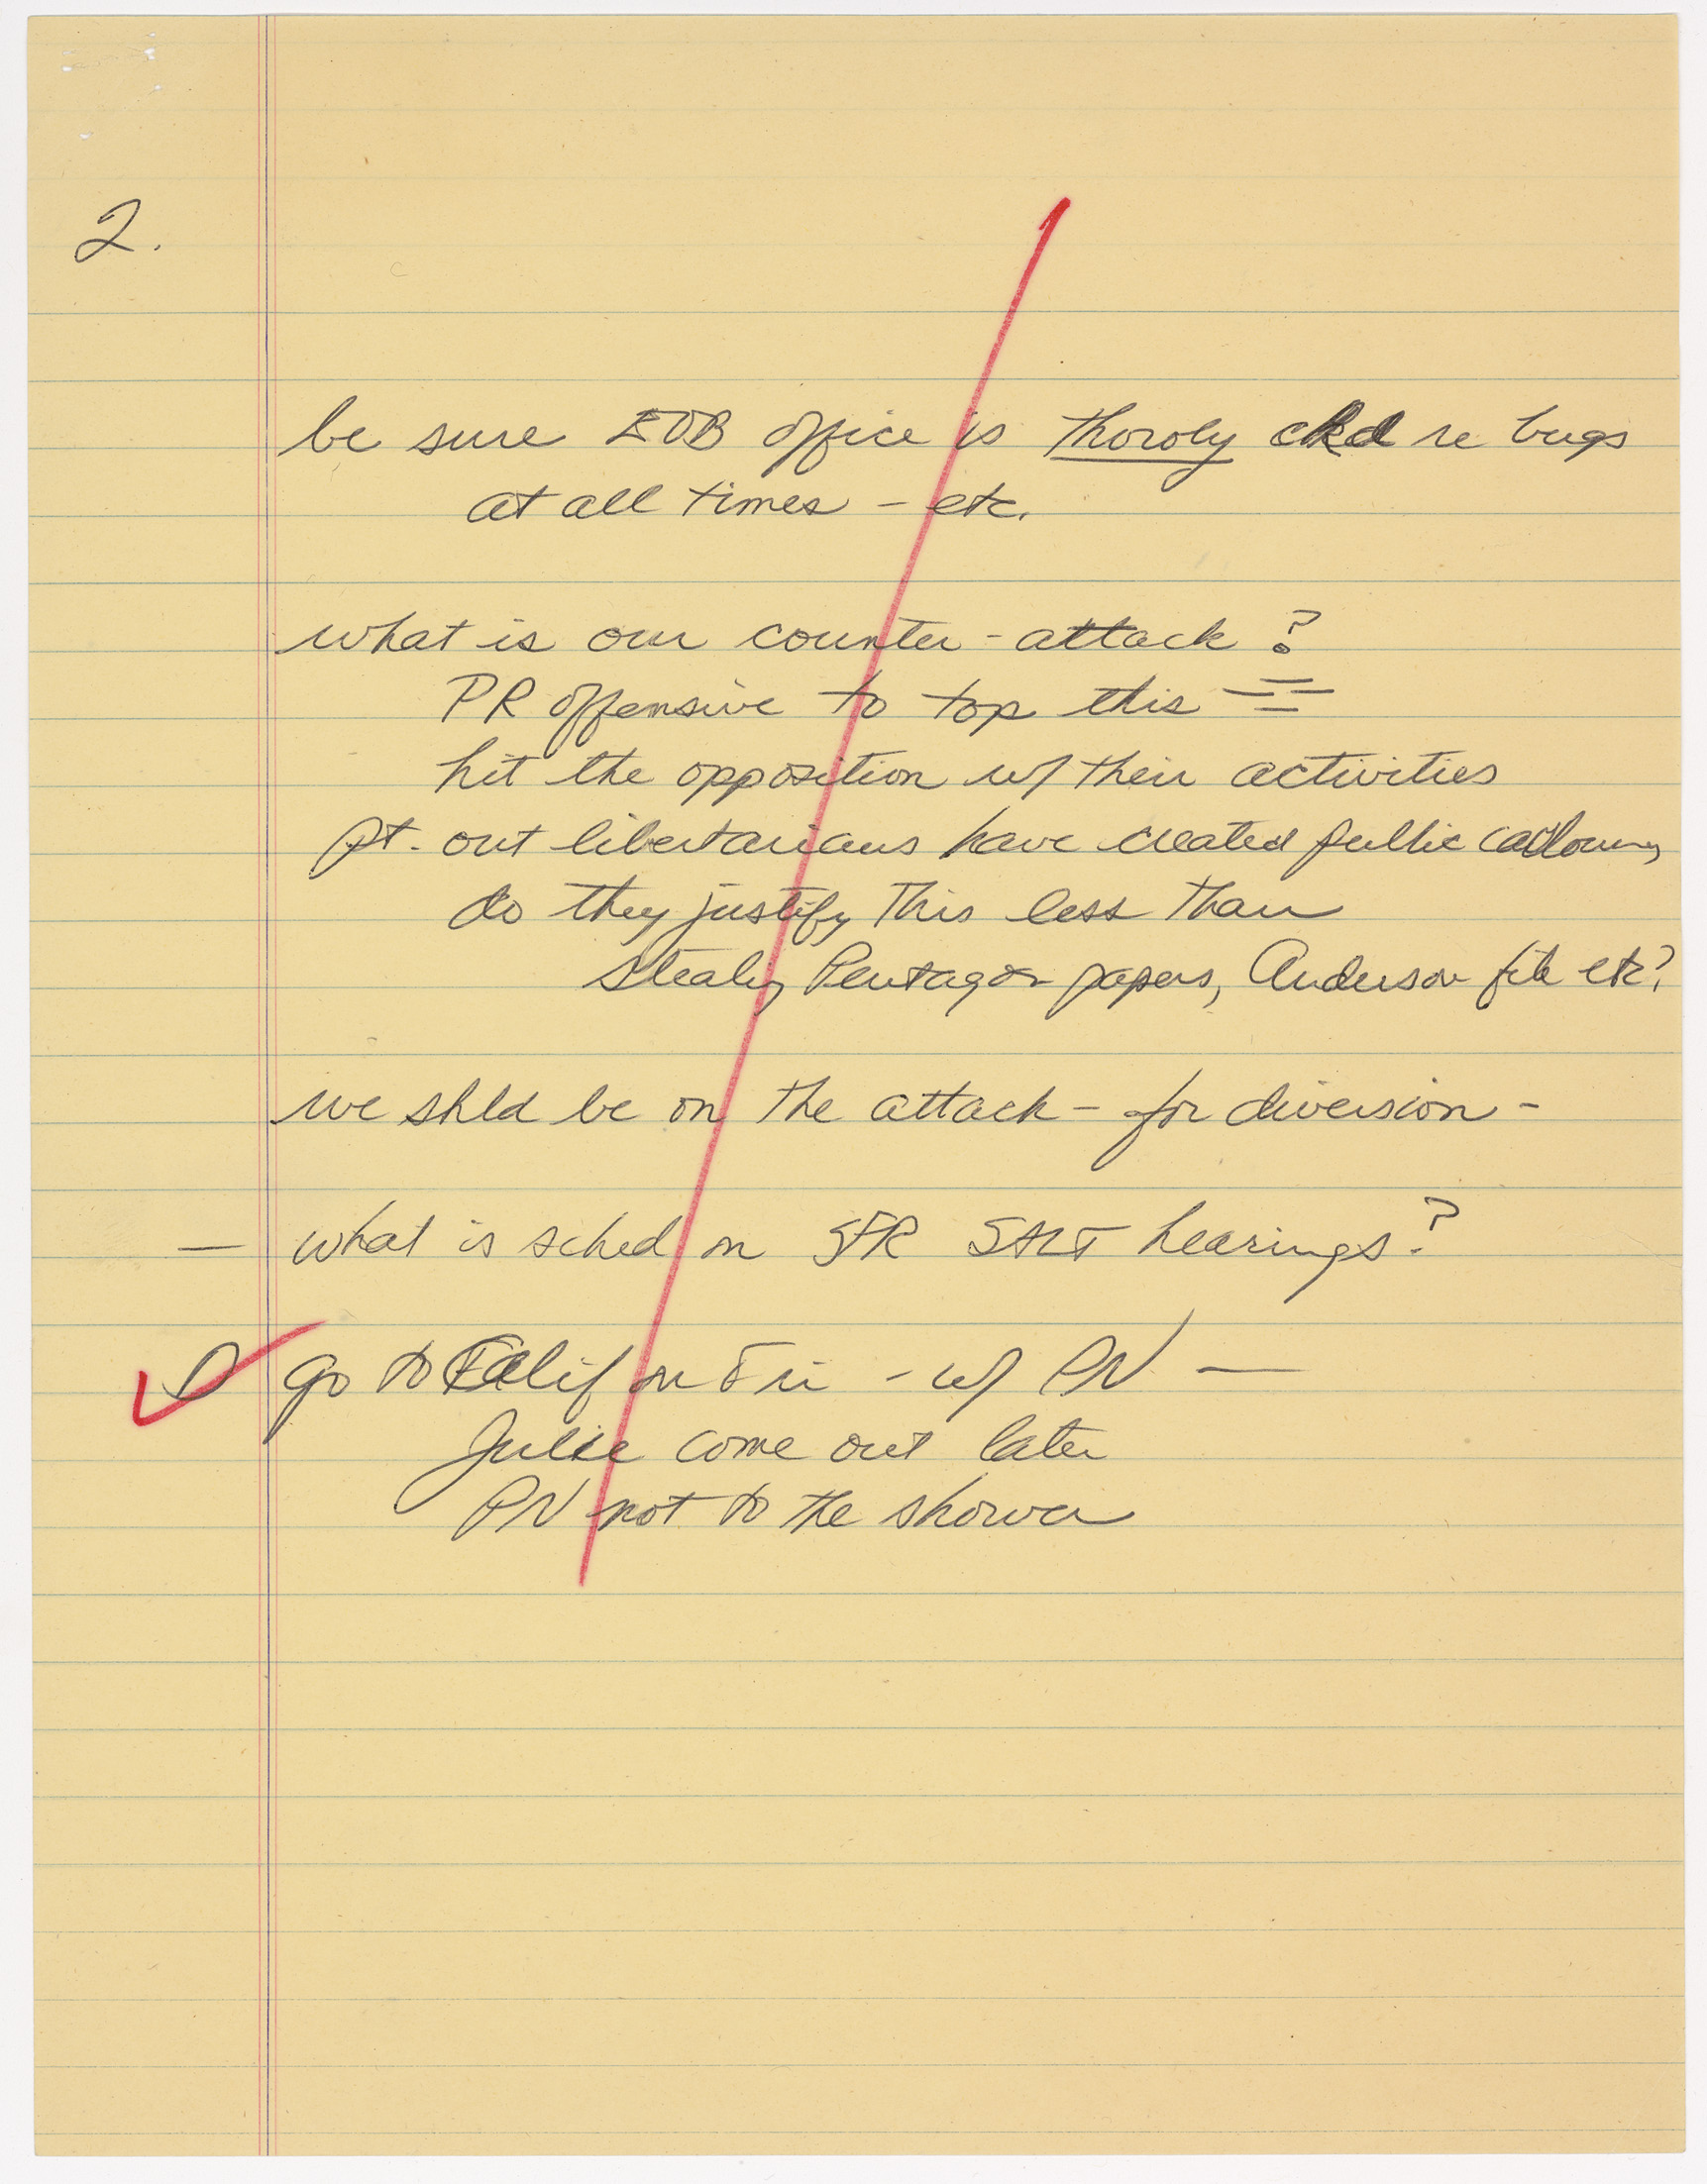 2.
be sure EOB office is thoroly ckd re bugs
at all times – etc.
what is our counter-attack?
PR offensive to top this
hit the opposition w/ their activities
pt. out libertarians have created public
do they justify this less than
stealing Pentagon papers, Anderson file etc?
we shld be on the attack – for diversion –
— what is sched on SFR SALT hearings?
go to Calif on Fri – w/ PN —
Julie come out later
PN not to the shower